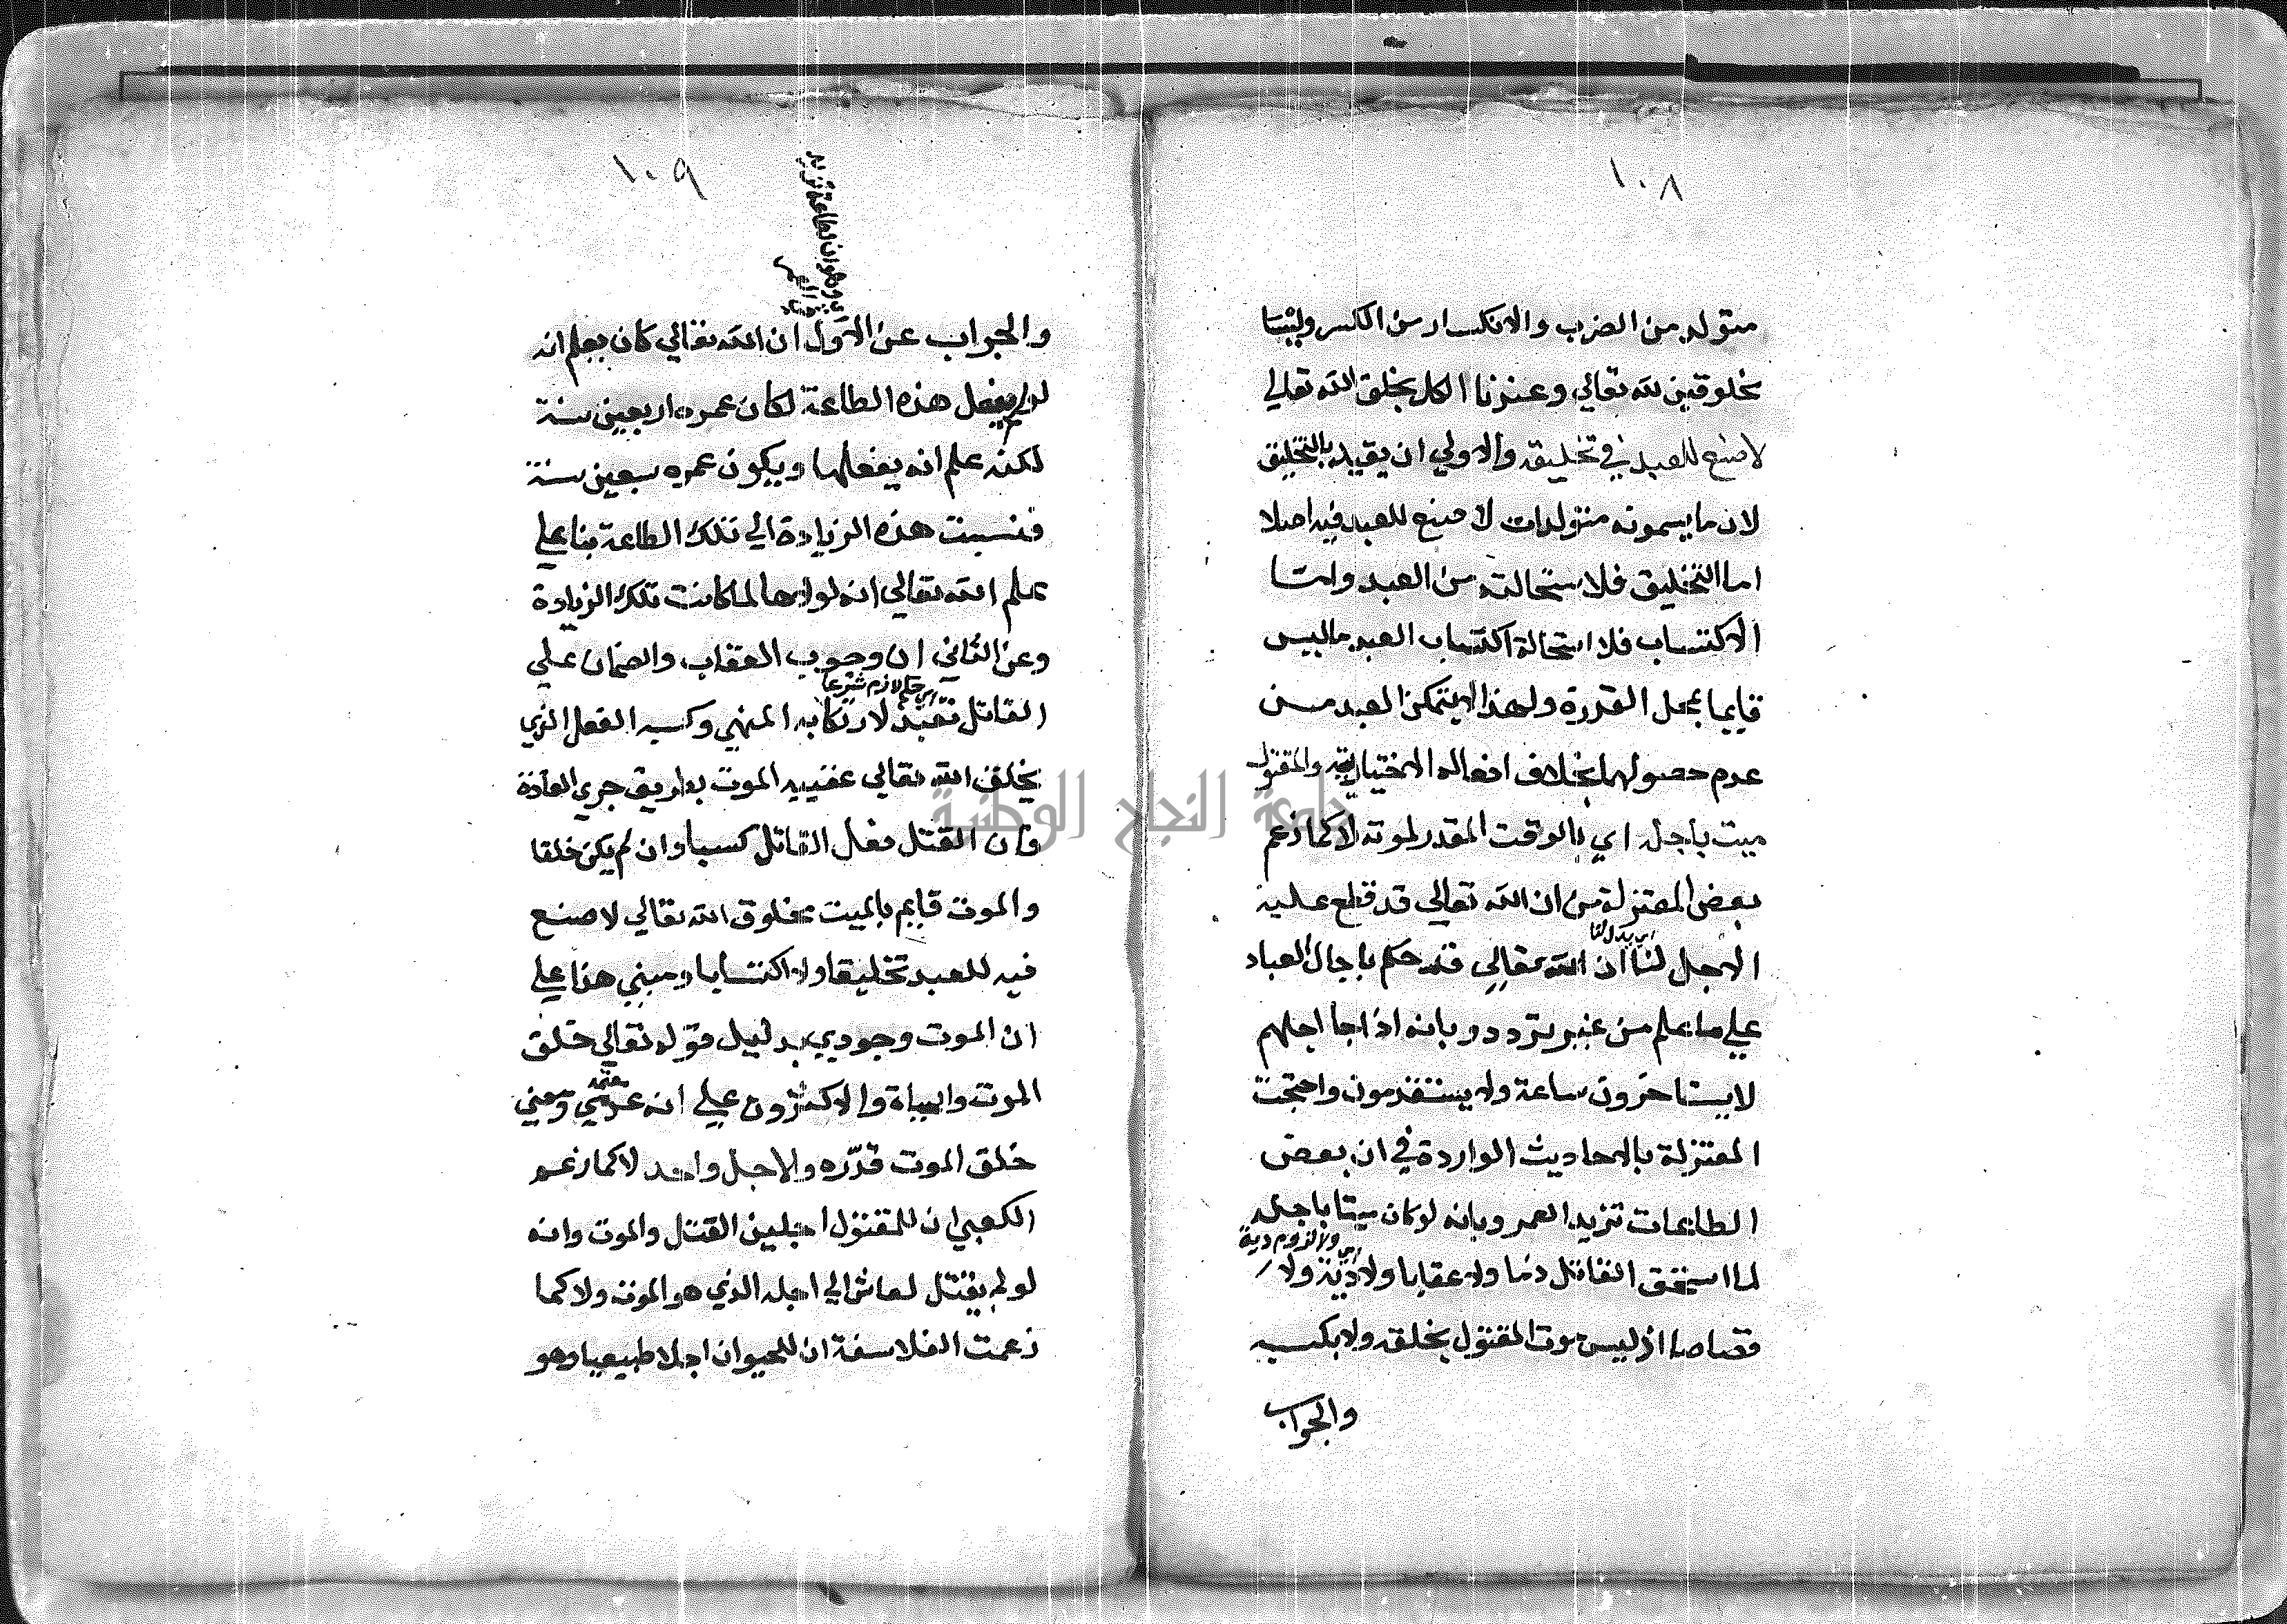 ١٠٨
متولد من الضرب والانكسار من الكسر وليسا
مخلوقين لله تعالي وعندنا الكل بخلق الله تعالي
لا صنع للعبد في تخليقه والاولي ان يقيد بالتخليق
لان ما يسمونه متولدات لا صنع للعبد فيه اصلا
اما التخليق فلاستحالته من العبد واما
الاكتساب فلاستحالة اكتساب العبد ما ليس
قايما بمحل القدرة ولهذا لا يتمكن العبد من
عدم حصولهما بخلاف افعاله الاختيارية والمقتول
ميت باجله اي بالوقت المقدر لموته لا كما زعم
بعض المعتزلة من ان الله تعالي قد قطع عليه
اي يدل لنا
الاجل لنا ان الله تعالي قد حكم باجال العباد
علي ما علم من غير تردد وبانه اذا جا اجلهم
لا يستاخرون ساعة ولا يستقدمون واحتجت
المعتزلة بالاحاديث الواردة في ان بعض
الطاعات تزيد العمر وبانه لو كان ميتا باجله
اي ولا لزوم دية
لما استحق القاتل ذما ولا عقابا ولا دية ولا
قصاصا اذ ليس موت المقتول بخلقه ولا بكسبه
والجواب
١٠٩
وهو ان الطاعة تزيد
العمر
والجواب عن الاول ان الله تعالي كان يعلم انه
لو لم يفعل هذه الطاعة لكان عمره اربعين سنة
لكنه علم انه يفعلها ويكون عمره سبعين سنة
فنسبت هذه الزيادة الي تلك الطاعة بنا علي
علم الله تعالي انه لولاها لما كانت تلك الزيادة
وعن الثاني ان وجوب العقاب والضمان علي
اي حكم لازم شرعا
القاتل تعبد لارتكابه المنهي وكسبه الفعل الذي
يخلق الله تعالي عقيبه الموت بطريق جري العادة
فان القتل فعل القاتل كسبا وان لم يكن خلقا
والموت قايم بالميت مخلوق الله تعالي لا صنع
فيه للعبد تخليقا ولا اكتسابا ومبني هذا علي
ان الموت وجودي بدليل قوله تعالي خلق
الموت والحياة والاكثرون علي انه عدمي ومعني
خلق الموت قدره والاجل واحد لا كما زعم
الكعبي ان للمقتول اجلين القتل والموت وانه
لو لم يقتل لعاش الي اجله الذي هو الموت ولا كما
زعمت الفلاسفة ان للحيوان اجلا طبيعيا وهو
جامعة النجاح الوطنية